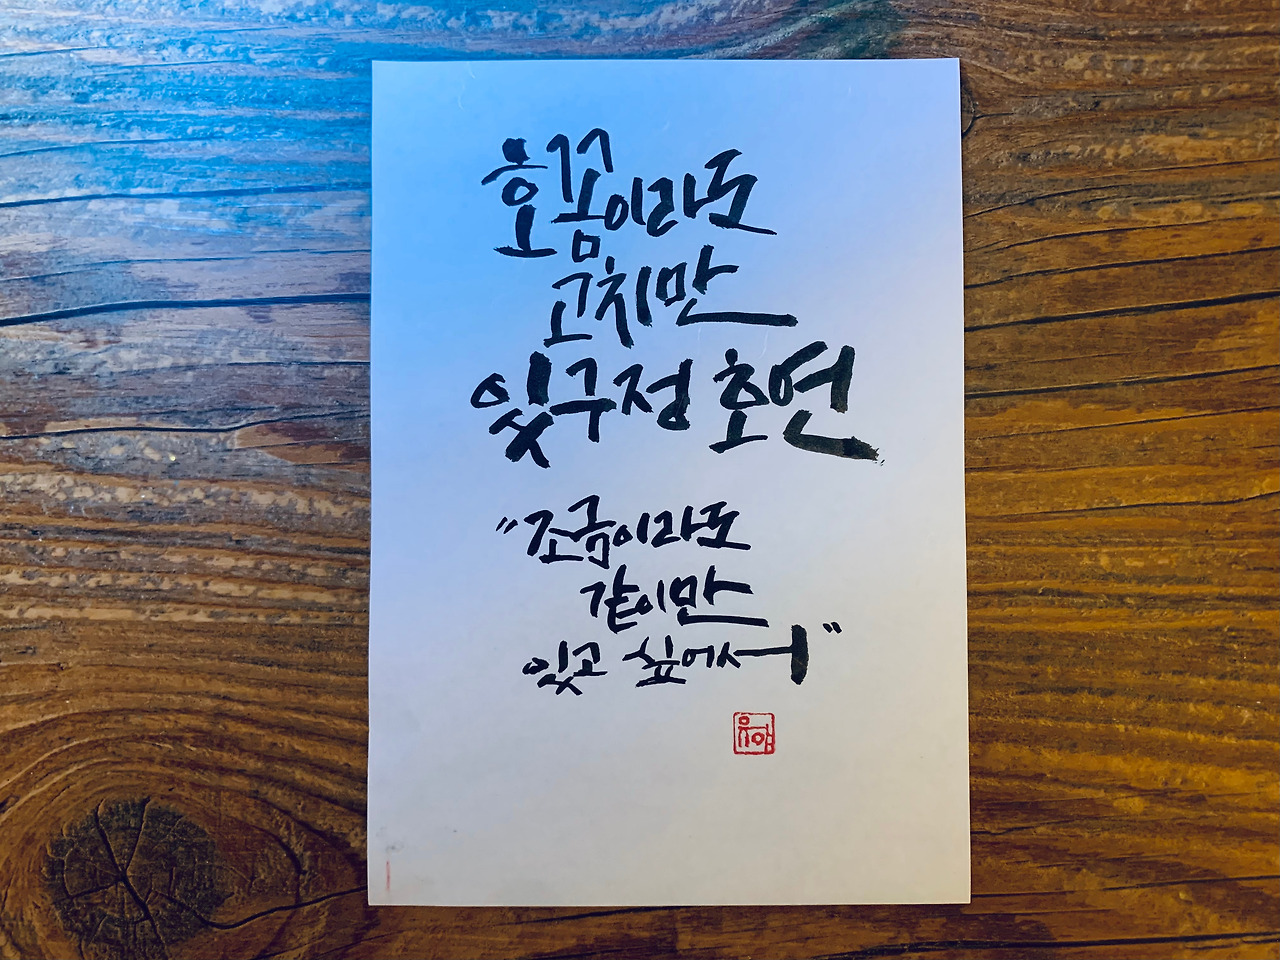 호꼼이라도
고치만
잇구정 호연
"조금이라도
같이만
있고 싶어서"